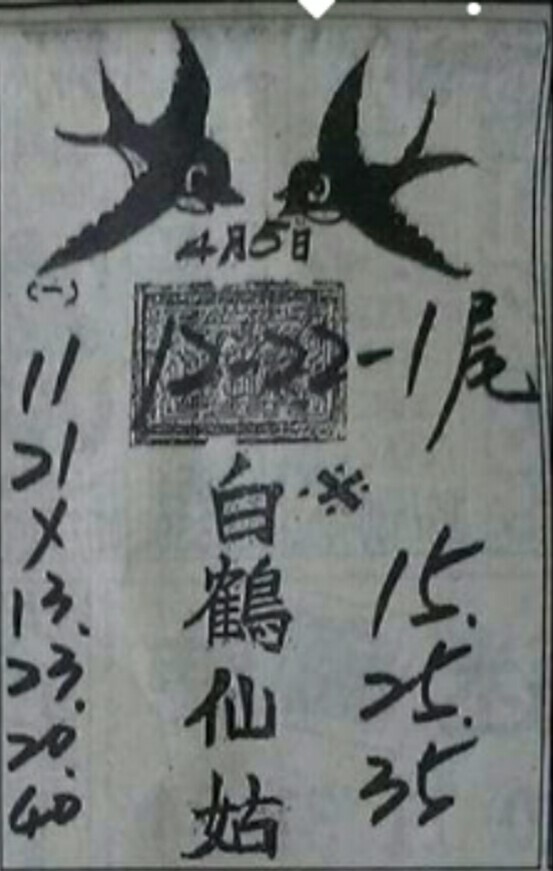 4月5日
(一)
12-22-1尾
11
21
X
13.
23.
20.
40
白鶴仙姑
※
15.
25.
35